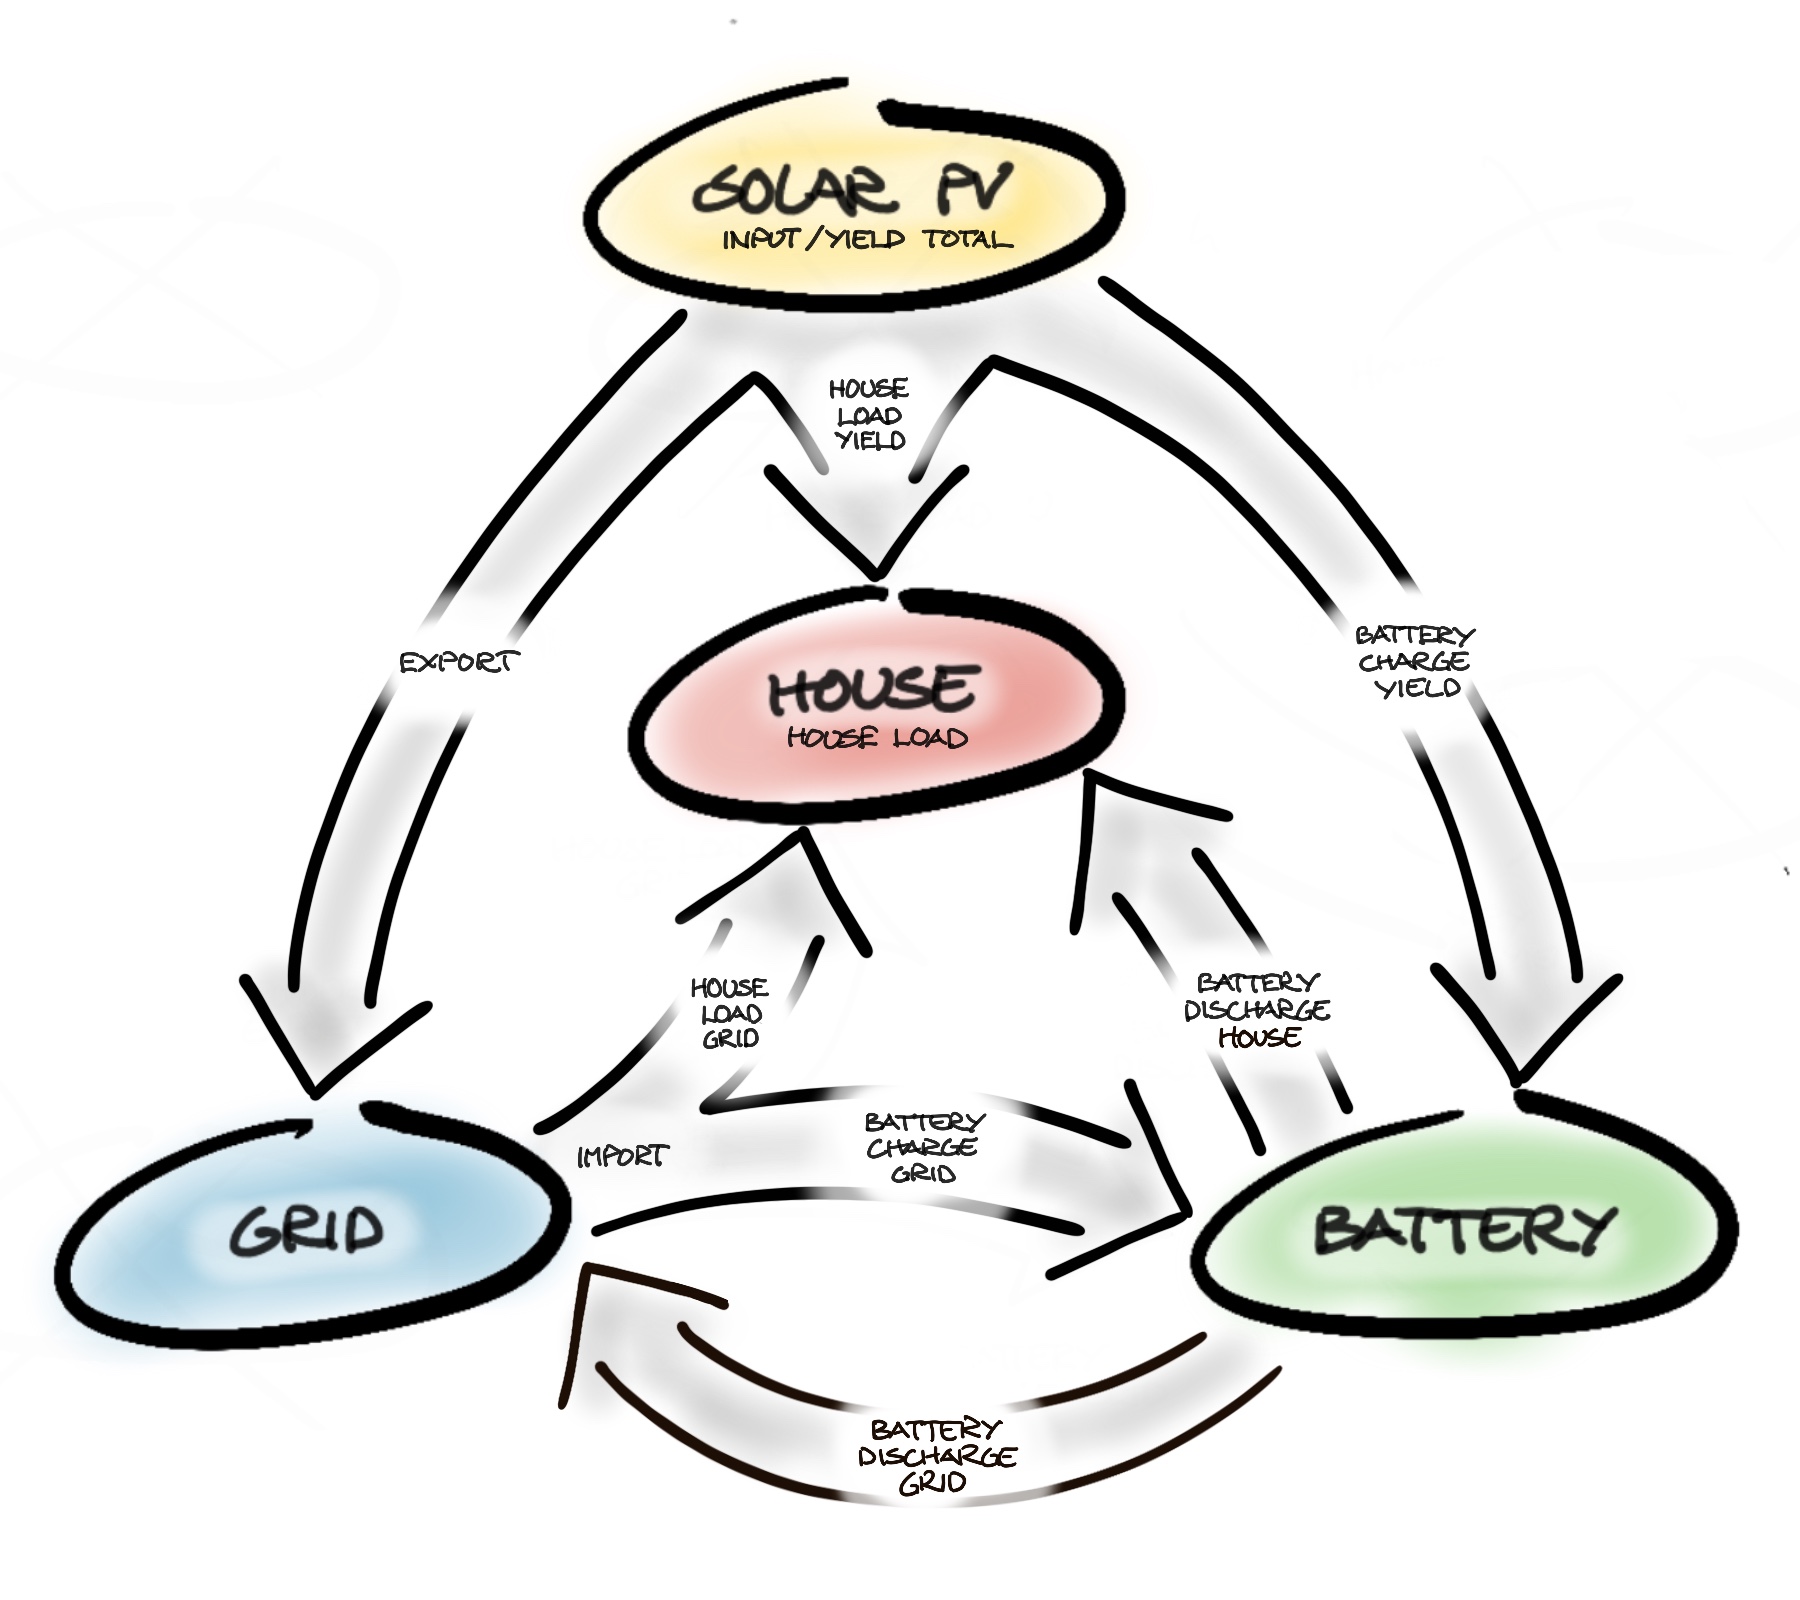 SOLAR PV
INPUT/YIELD TOTAL
HOUSE
LOAD
YIELD
EXPORT
BATTERY
CHARGE
YIELD
HOUSE
HOUSE LOAD
HOUSE
LOAD
GRID
BATTERY
DISCHARGE
HOUSE
IMPORT
BATTERY
CHARGE
GRID
GRID
BATTERY
BATTERY
DISCHARGE
GRID